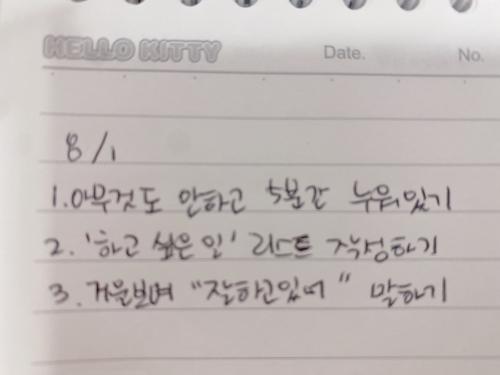 HELLO KITTY Date. No.
8/1
1. 아무것도 안하고 5분간 누워있기
2. '하고 싶은 일' 리스트 작성하기
3. 거울보며 "잘하고있어" 말하기